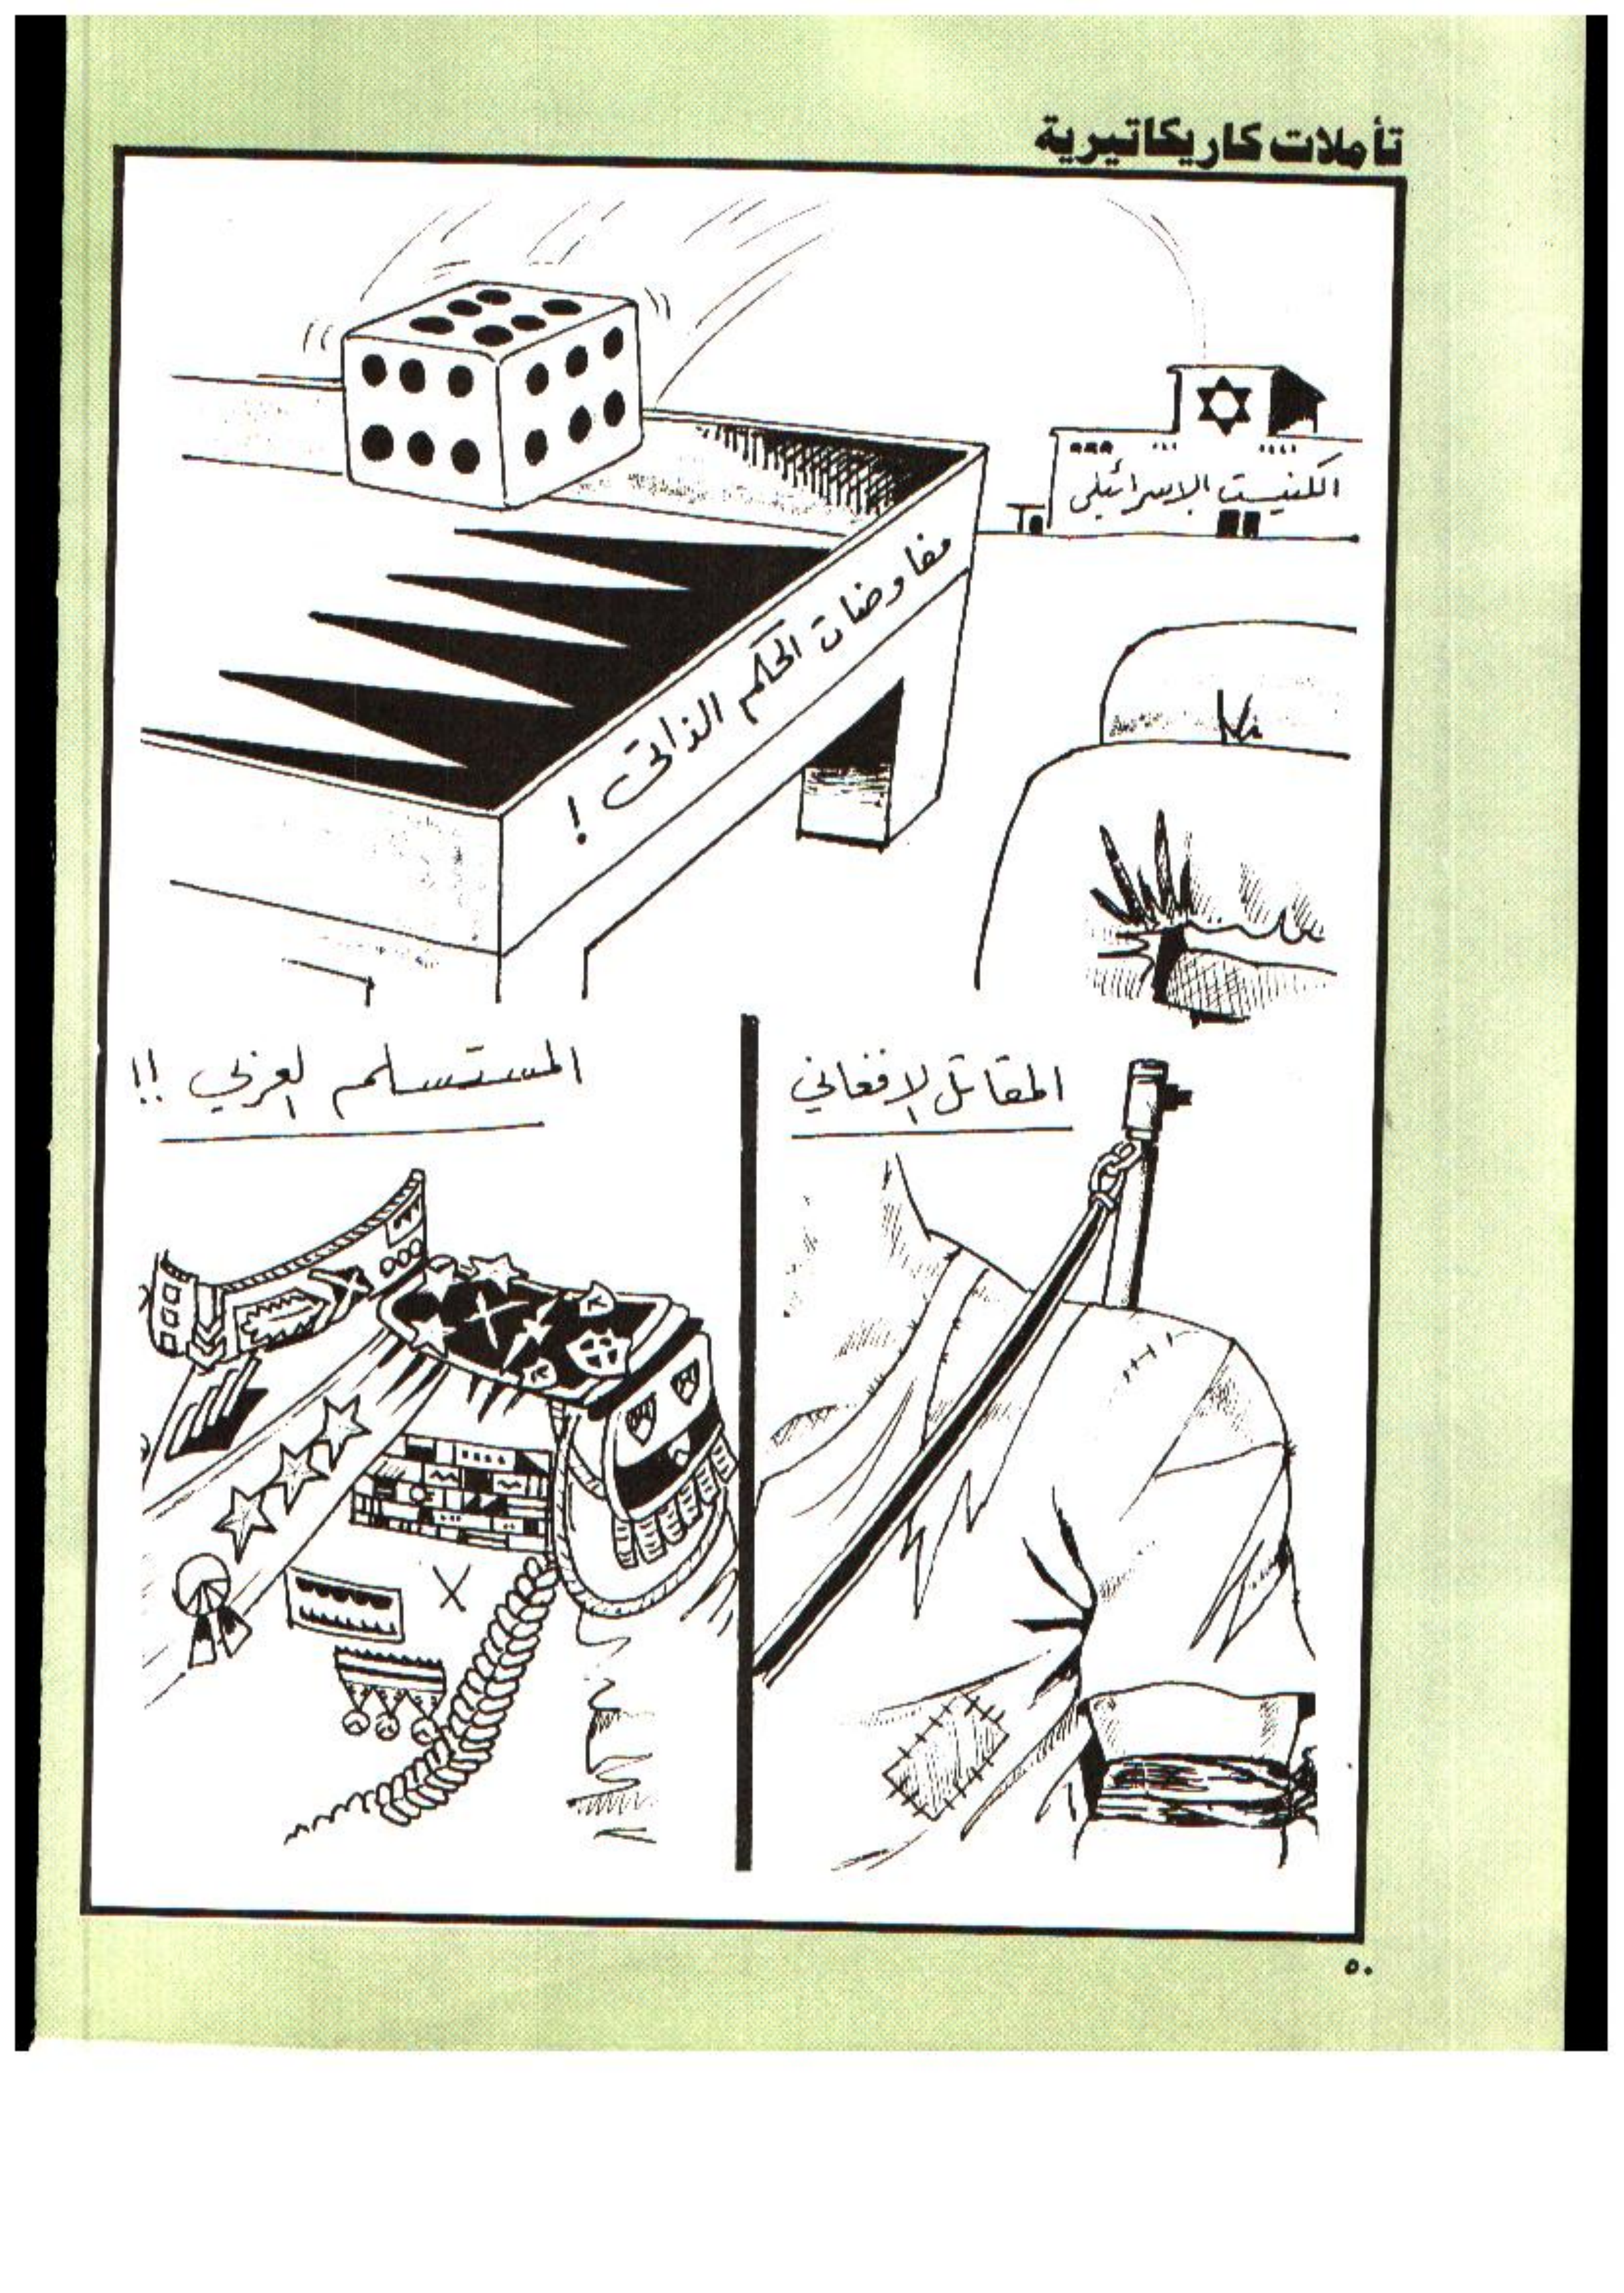 تأملات كاريكاتيرية
الكنيست الاسرائيلي
مفاوضات الحكم الذاتي !
المقاتل الافغاني
المستسلم العربي !!
٥٠